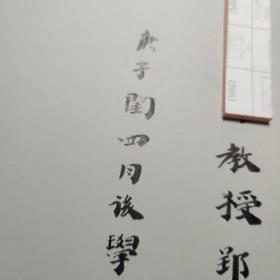 教授鄧
庚子閏四月後學